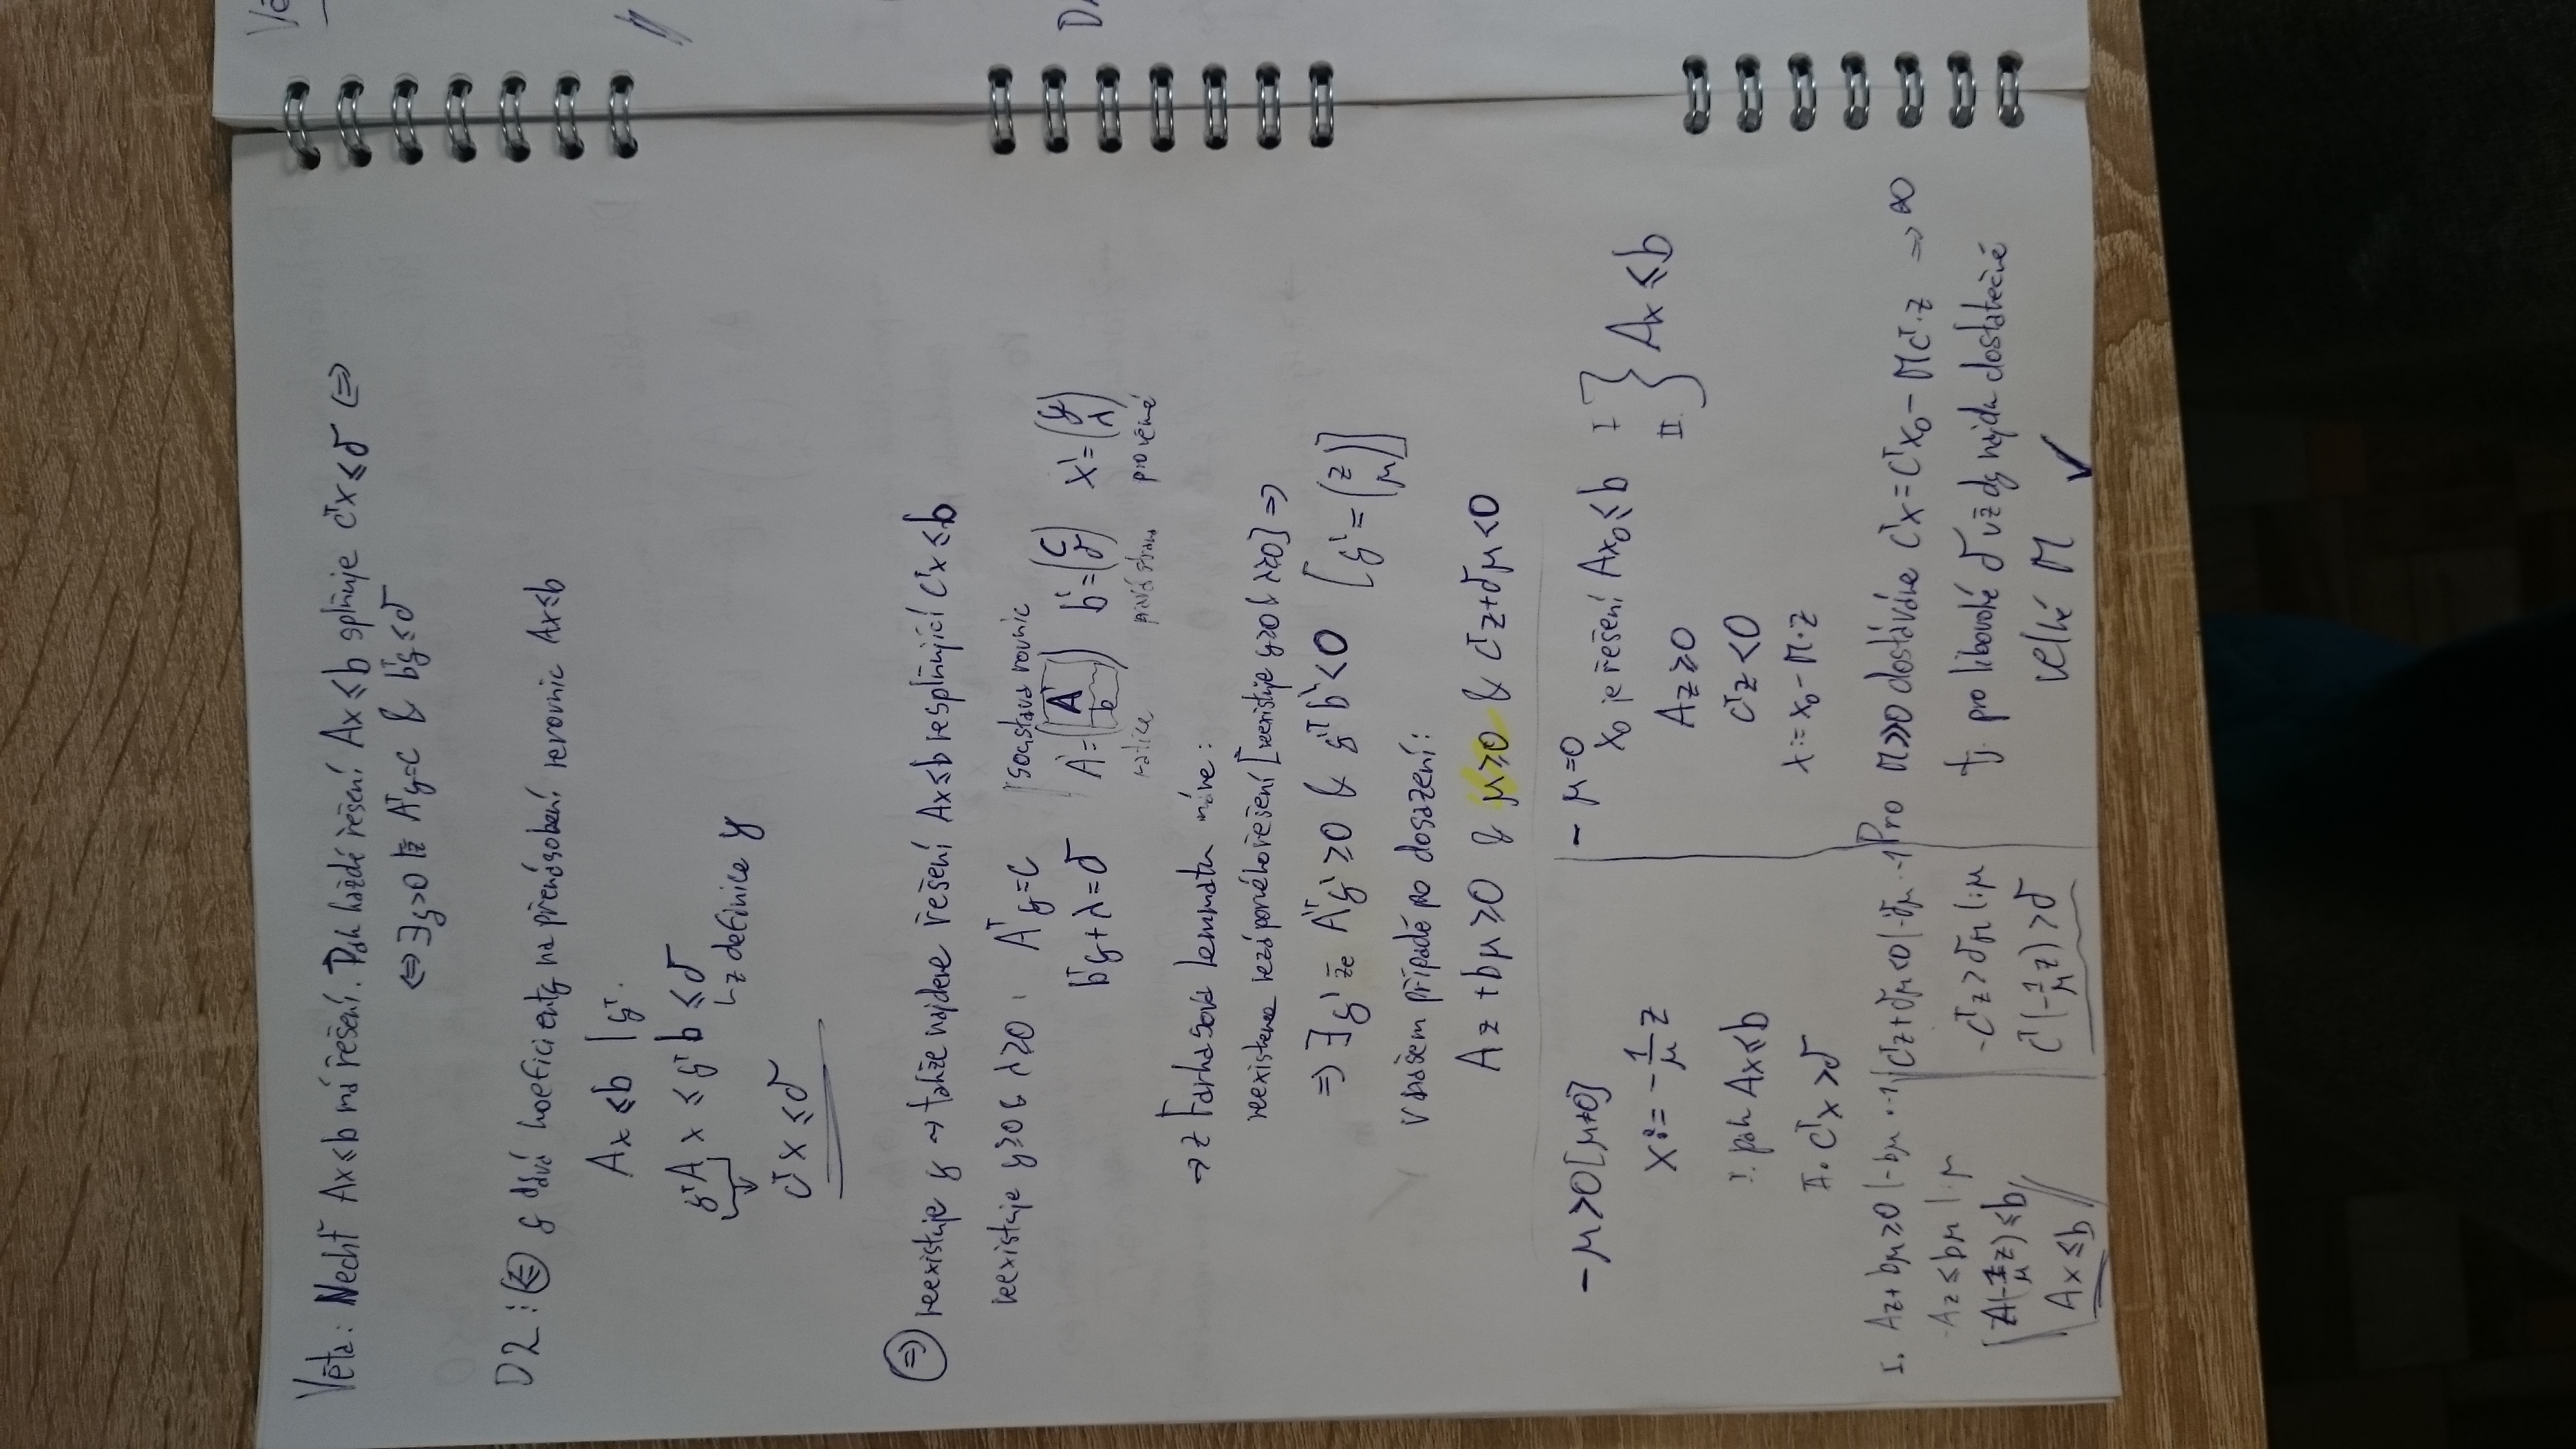 Věta: Nechť Ax≤b má řešení. Pak každé řešení Ax≤b splňuje cᵀx≤δ ⇔
⇔ ∃y≥0 že Aᵀy=c & bᵀy≤δ
D2: ⇐ y dává koeficienty na přenásobení nerovnic Ax≤b
Ax≤b |yᵀ·
yᵀAx ≤ yᵀb ≤ δ
z definice y
cᵀx ≤ δ
⇒ neexistuje y → takže najdeme řešení Ax≤b nesplňující cᵀx≤b
neexistuje y≥0 & λ≥0 : Aᵀy=c
bᵀy+λ=δ
soustava rovnic
A' = (Aᵀ b) b' = (c δ) x' = (y λ)
matice pravá strana proměné
→ z Farkasova lemmatu máme:
neexistence nezáporného řešení [neexistuje y≥0 & λ≥0] ⇒
⇒ ∃y' že A'ᵀy' ≥0 & y'ᵀb'<0 [y' = (z μ)]
V našem případě po dosazení:
Az+bμ≥0 & μ≥0 & cᵀz+δμ<0
- μ>0 [μ≠0]
x := -1/μ z
I. pak Ax≤b
II. cᵀx>δ
I. Az+bμ≥0 |-bμ ·-1
-Az≤bμ |:μ
A(-1/μ z)≤b
Ax≤b
cᵀz+δμ<0 |-δμ ·-1
-cᵀz>δμ |:μ
cᵀ(-1/μ z)>δ
- μ=0
x₀ je řešení Ax₀≤b I
Az≥0 II } Ax≤b
cᵀz<0
x := x₀-M·z
Pro M≫0 dostáváme cᵀx=cᵀx₀-Mcᵀ·z → ∞
tj. pro libovolé δ vždy najdu dostatečně
velké M ✓